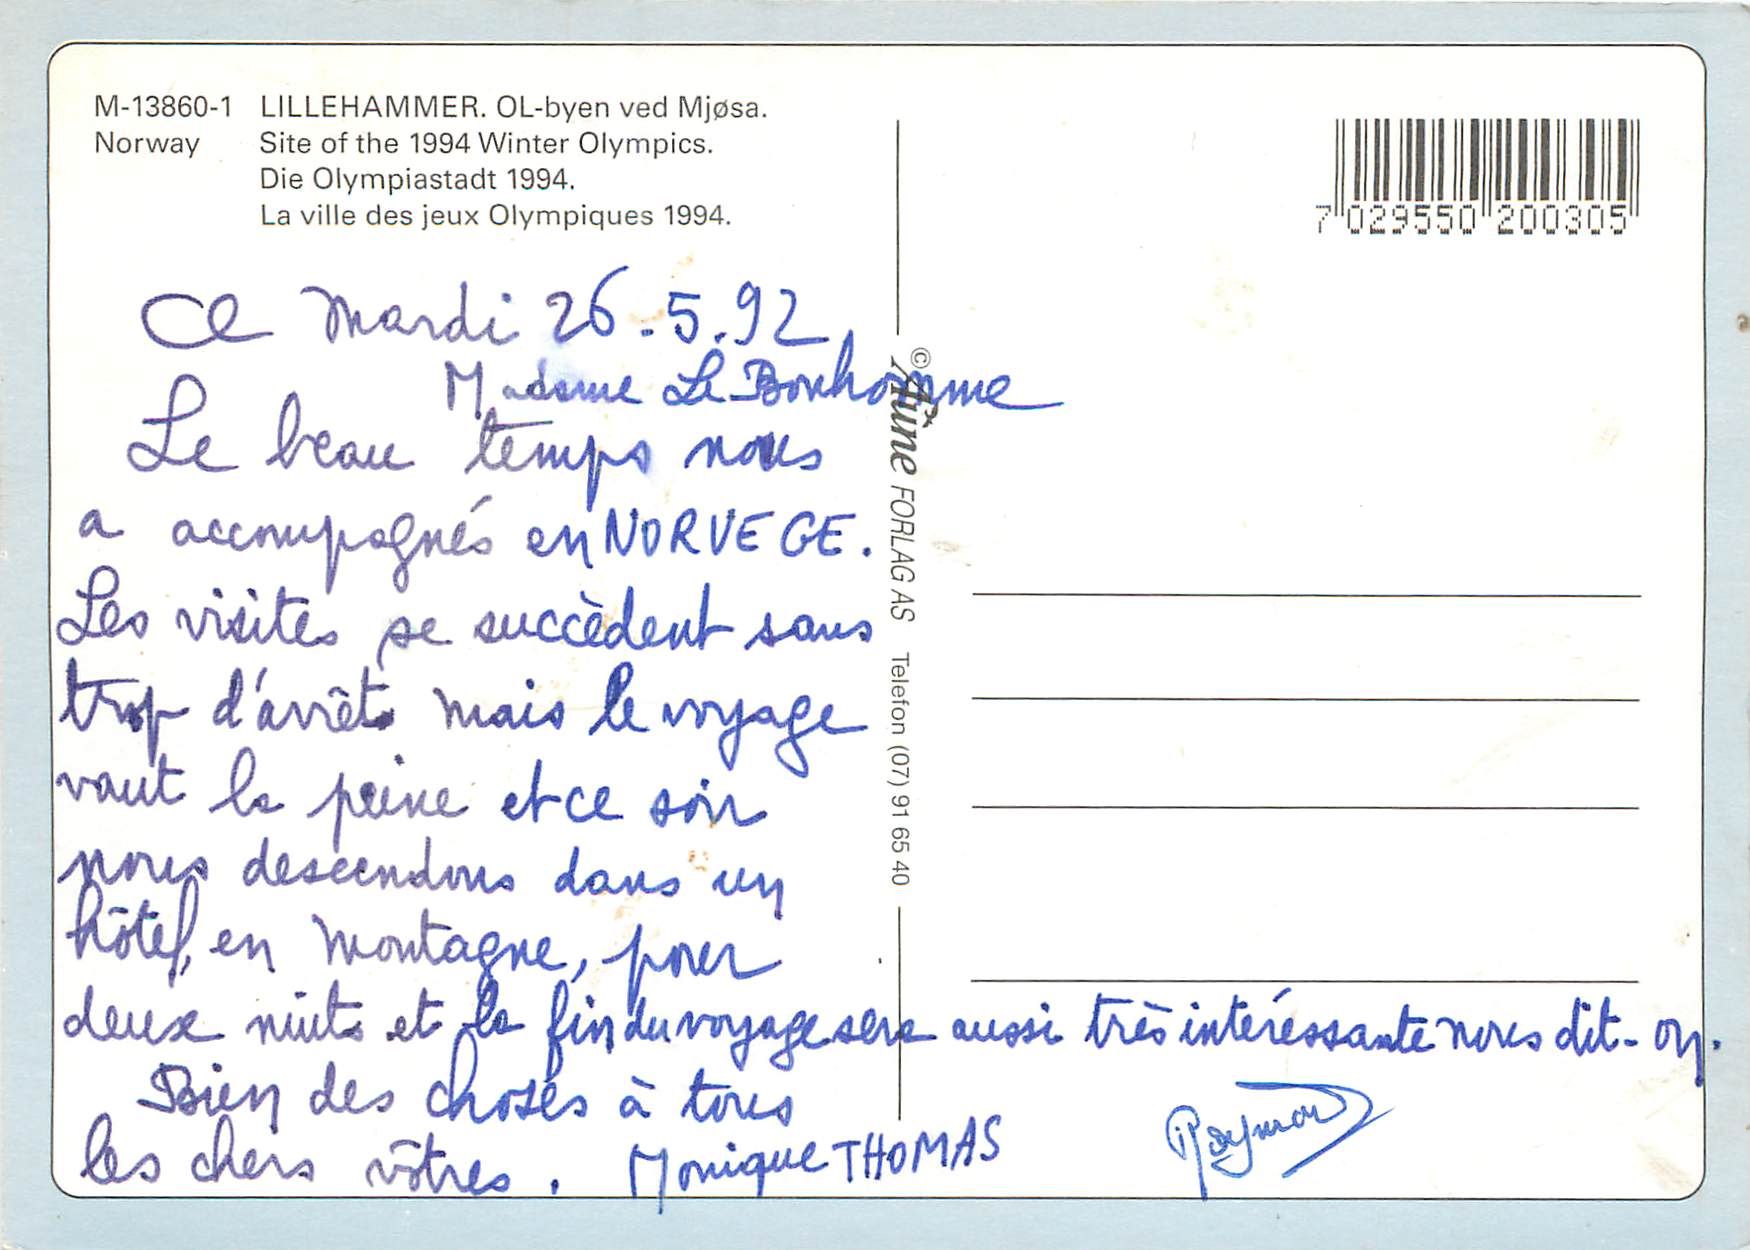 M-13860-1 LILLEHAMMER. OL-byen ved Mjøsa.
Norway Site of the 1994 Winter Olympics.
Die Olympiastadt 1994.
La ville des jeux Olympiques 1994.
7 029550 200305
© Aune FORLAG AS Telefon (07) 91 65 40
Ce Mardi 26.5.92
Madame Le Bonhomme
Le beau temps nous
a accompagnés en NORVEGE.
Les visites se succèdent sans
trop d'arrêts mais le voyage
vaut la peine et ce soir
nous descendons dans un
hôtel, en montagne, pour
deux nuits et la fin du voyage sera aussi très intéressante nous dit-on.
Bien des choses à tous
les chers vôtres. Monique THOMAS
Raymond